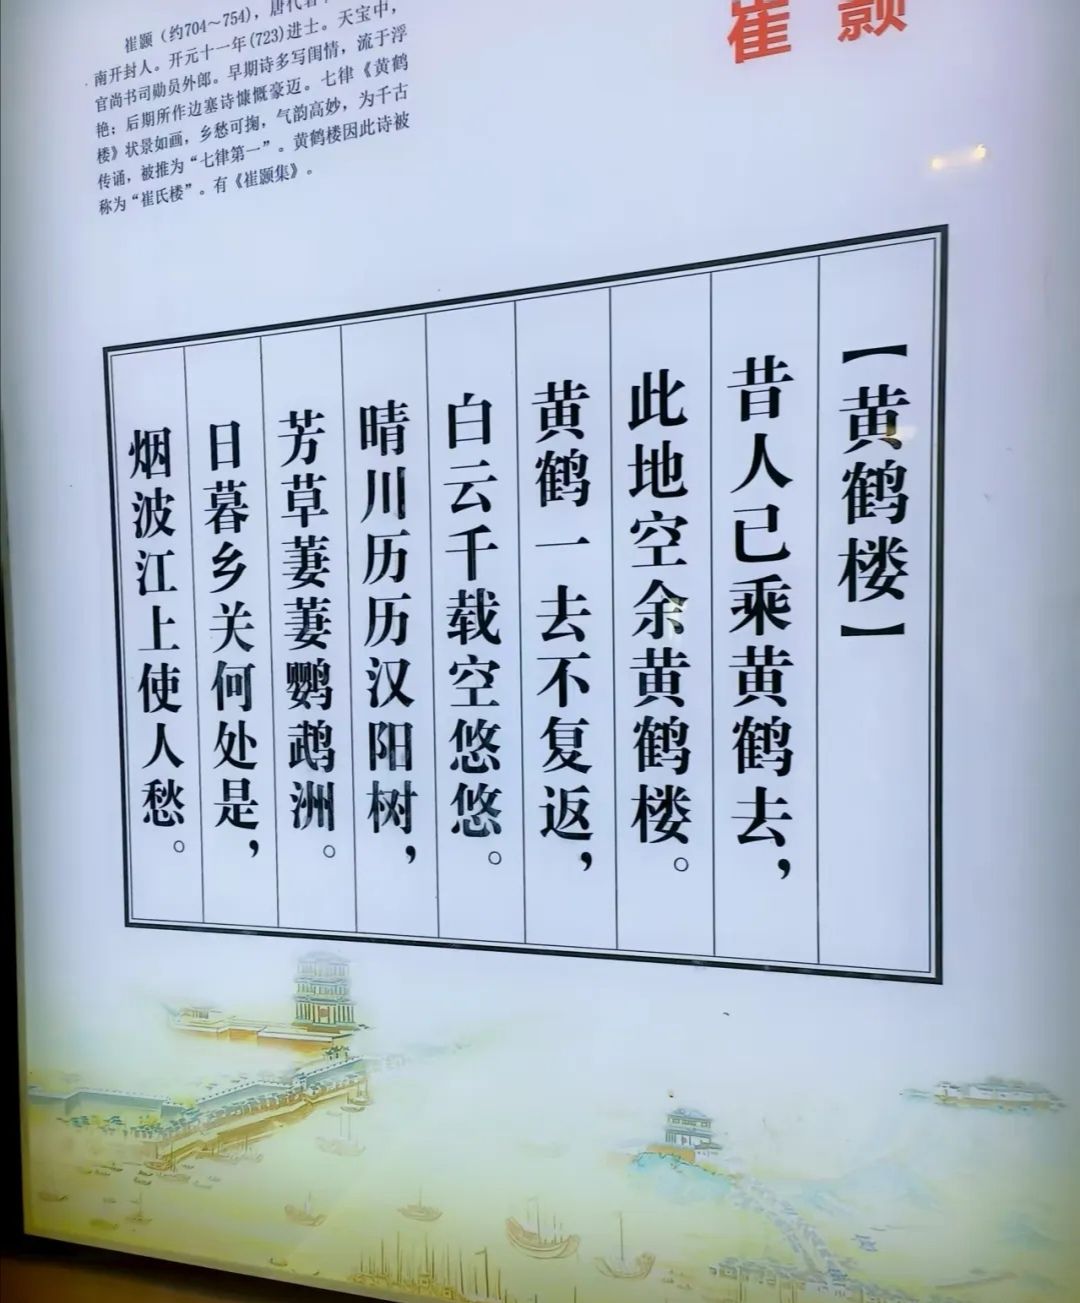 崔颢
崔颢（约704～754），唐代
南开封人。开元十一年(723)进士。天宝中，
官尚书司勋员外郎。早期诗多写闺情，流于浮
艳；后期所作边塞诗慷慨豪迈。七律《黄鹤
楼》状景如画，乡愁可掬，气韵高妙，为千古
传诵，被推为“七律第一”。黄鹤楼因此诗被
称为“崔氏楼”。有《崔颢集》。
【黄鹤楼】
昔人已乘黄鹤去，
此地空余黄鹤楼。
黄鹤一去不复返，
白云千载空悠悠。
晴川历历汉阳树，
芳草萋萋鹦鹉洲。
日暮乡关何处是，
烟波江上使人愁。